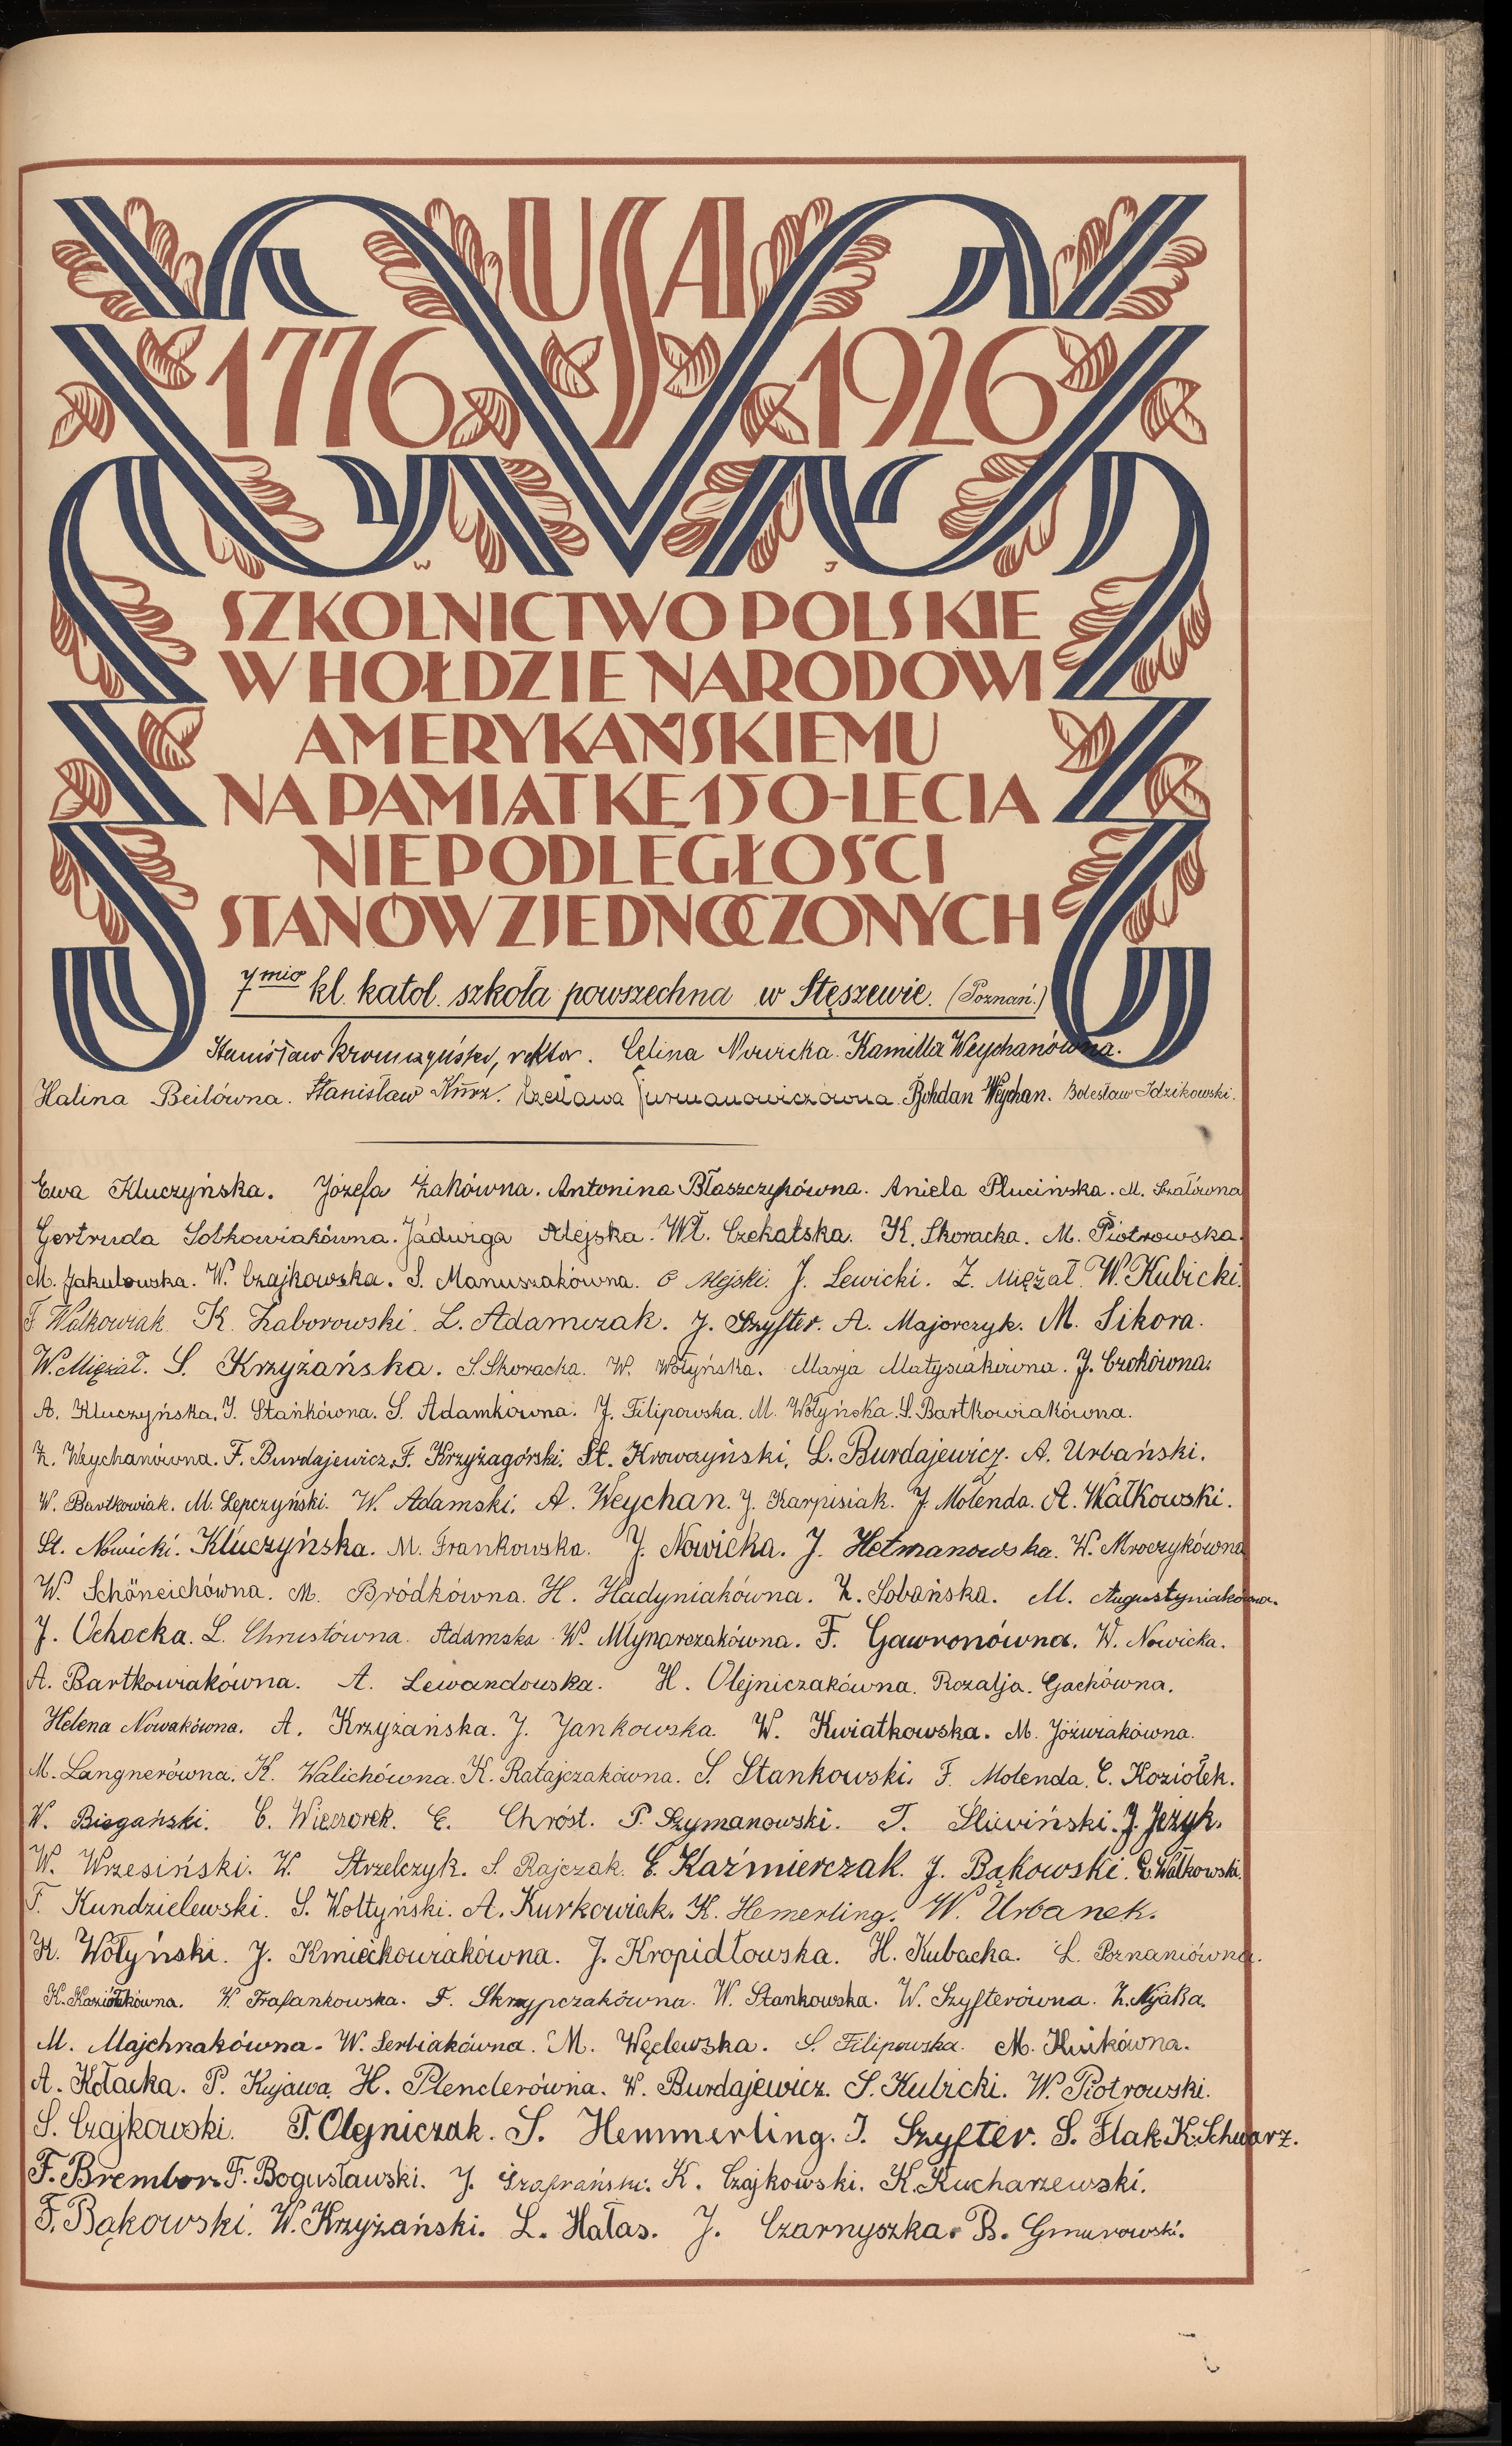 USA
1776 1926
W J
SZKOLNICTWO POLSKIE
W HOŁDZIE NARODOWI
AMERYKAŃSKIEMU
NA PAMIĄTKĘ 150-LECIA
NIEPODLEGŁOŚCI
STANÓW ZJEDNOCZONYCH
7mio kl. katol. szkoła powszechna w Stęszewie. (Poznań.)
Stanisław Krowczyński, rektor. Celina Nowicka. Kamilla Weychanówna.
Halina Beilówna. Stanisław Czesława Furmanowiczówna. Bohdan Weychan. Bolesław Idzikowski.
Ewa Kluczyńska. Józefa Żakówna. Antonina Błaszczykówna. Aniela Plucińska. M. Szałówna
Gertruda Sobkowiakówna. Jadwiga Alejska. Wł. Czekalska. K. Skoracka. M. Piotrowska.
M. Jakubowska. W. Czajkowska. S. Manuszakówna. C Alejski. J. Lewicki. Z. Miężał. W. Kubicki.
F Walkowiak. K. Zaborowski. L. Adamczak. J. Szyfter. A. Majorczyk. M. Sikora.
W. Miężał. S. Krzyżańska. S. Skoracka. W. Wołyńska. Marja Matysiakówna. J. Czokówna.
A. Kluczyńska. J. Stańkówna. S. Adamkówna. J. Filipowska. M. Wołyńska. S. Bartkowiakówna.
Z. Weychanówna. F. Burdajewicz. F. Krzyżagórski. St. Krowczyński. L. Burdajewicz. A. Urbański.
W. Bartkowiak. M. Lepczyński. W. Adamski. A. Weychan. J. Karpisiak. J. Molenda. A. Wałkowski.
St. Nowicki. Kluczyńska. M. Frankowska. J. Nowicka. J. Hetmanowska. W. Mroczykówna
W. Schöneichówna. M. Bródkówna. H. Hadyniakówna. Z. Sobańska. M. Augustyniakówna.
J. Ochocka. L. Chrustówna. Adamska. W. Młynarczakówna. F. Gawronówna. W. Nowicka.
A. Bartkowiakówna. A. Lewandowska. H. Olejniczakówna. Rozalja. Gachówna.
Helena Nowakówna. A. Krzyżańska. J. Jankowska. W. Kwiatkowska. M. Jóźwiakówna.
M. Langnerówna. K. Walichówna. K. Ratajczakówna. S. Stankowski. F. Molenda. C. Koziołek.
W. Biegański. C. Wieczorek. E. Chróst. P. Szymanowski. T. Śliwiński. J. Jeżyk.
W. Wrzesiński. W. Strzelczyk. S. Rajczak. C. Kaźmierczak. J. Bąkowski. C. Wałkowski.
F. Kundzielewski. S. Wołtyński. A. Kurkowiak. K. Hemerling. W. Urbanek.
K. Wołyński. J. Kmiećkowiakówna. J. Kropidłowska. H. Kubacka. L. Poznaniówna.
K. Koziołkówna. W. Frasankowska. F. Skrzypczakówna. W. Stankowska. W. Szyfterówna. Z. Nyaka.
M. Majchrzakówna. W. Serbiakówna. M. Węclewska. S. Filipowska. M. Kurkówna.
A. Kołacka. P. Kujawa. H. Plenclerówna. W. Burdajewicz. S. Kubicki. W. Piotrowski.
S. Czajkowski. T. Olejniczak. S. Hemmerling. J. Szyfter. S. Flak. K. Schwarz.
F. Brembor. F. Bogusławski. J. Szafrański. K. Czajkowski. K. Kucharzewski.
F. Bąkowski. W. Krzyżański. L. Hałas. J. Czarnyszka. B. Gmurowski.